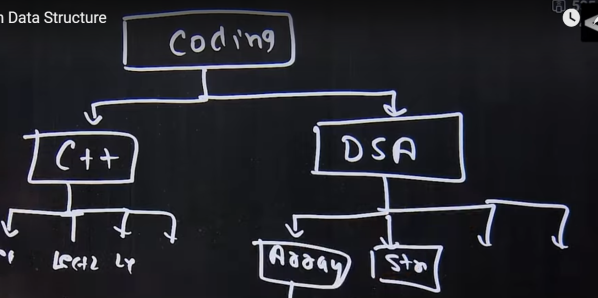 n Data Structure
Coding
C++
DSA
Lect2 L4
Array
Str